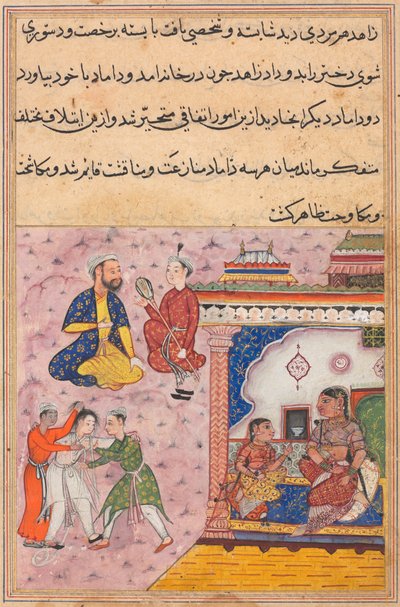 زاهد هر مردی دید شایسته و شخصی یافت بایسته برخصت و دستوری
شوی دختر را بدو داد زاهد چون در خانه آمد و داماد با خود بیاورد
دو داماد دیگر آنجا دید ازین امور اتفاقی متحیّر شد و ازین ایتلاف مختلف
متفکر ماند میان هر سه داماد منازعت و مناقشت قایم شد و مکاشحت
و مکاوحت ظاهر گشت